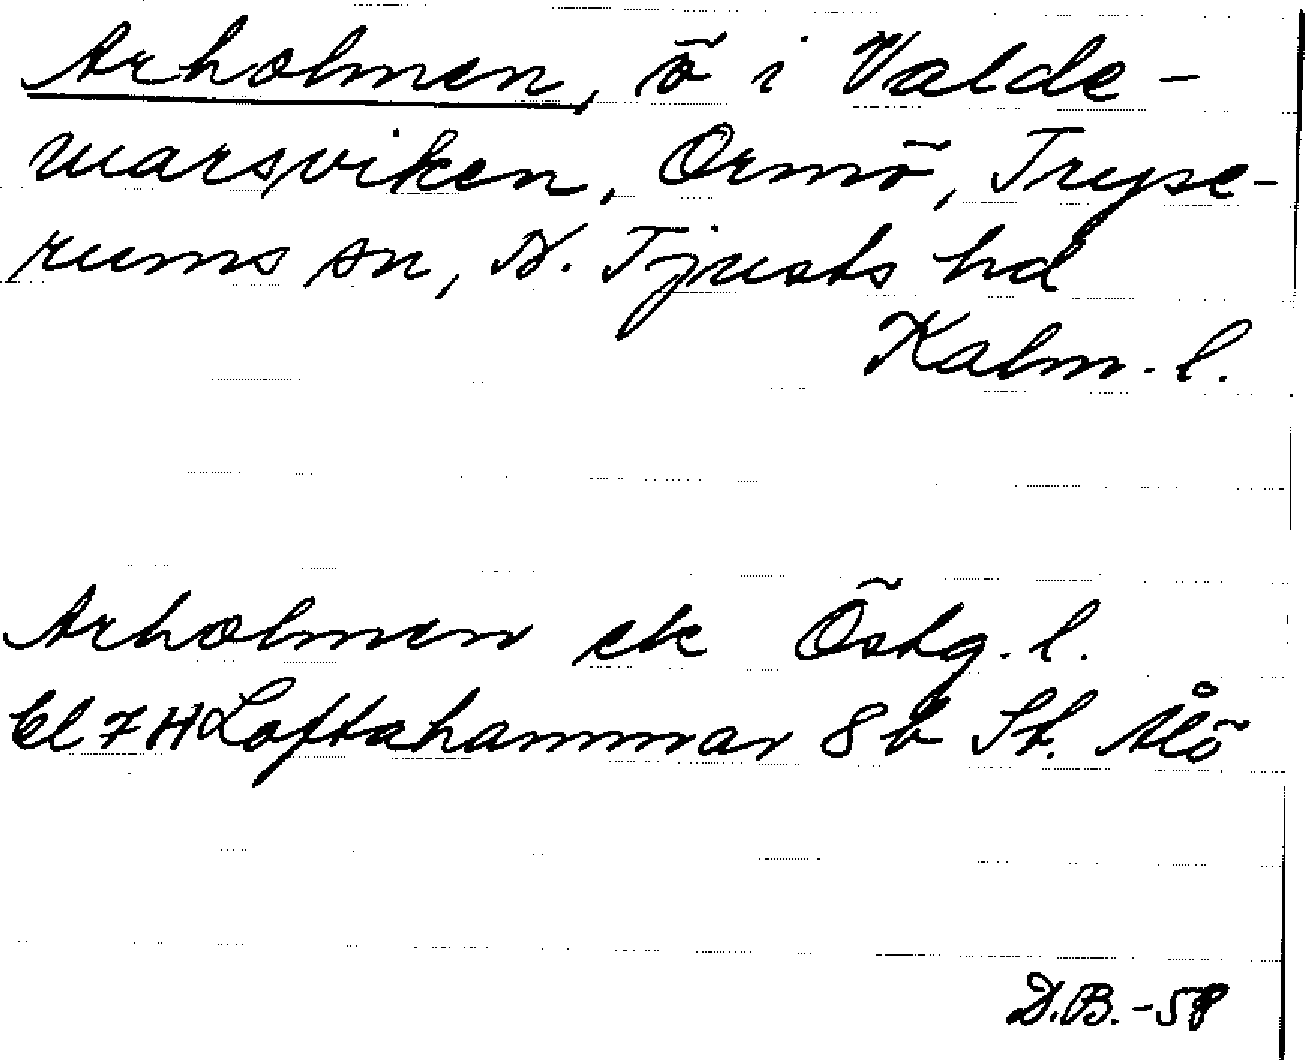 Arholmen, ö i Valde-
marsviken, Ormö, Tryse-
rums sn, N. Tjusts hd
Kalm. l.
Arholmen ek Östg. l.
Bl 7 H Loftahammar 8 b St. Ålö
D.B. -58